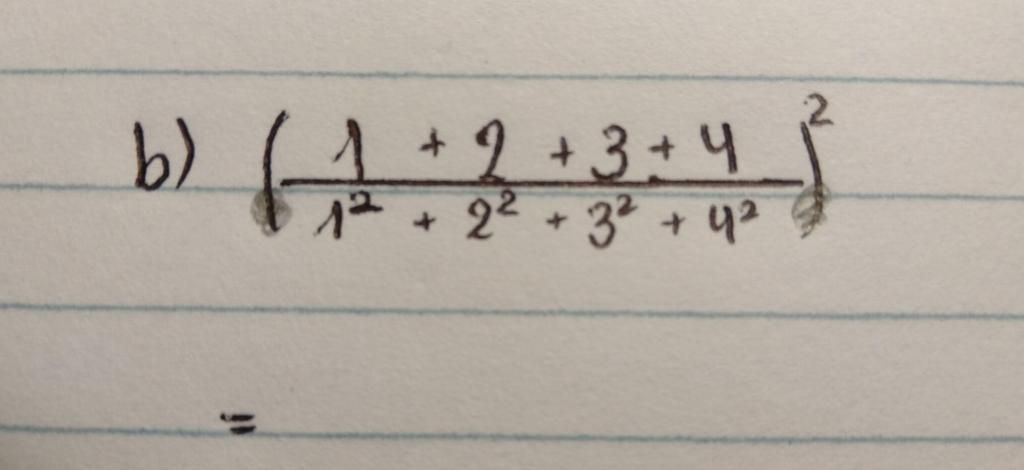 b) ( 1 + 2 + 3 + 4 )²
1² + 2² + 3² + 4²
=